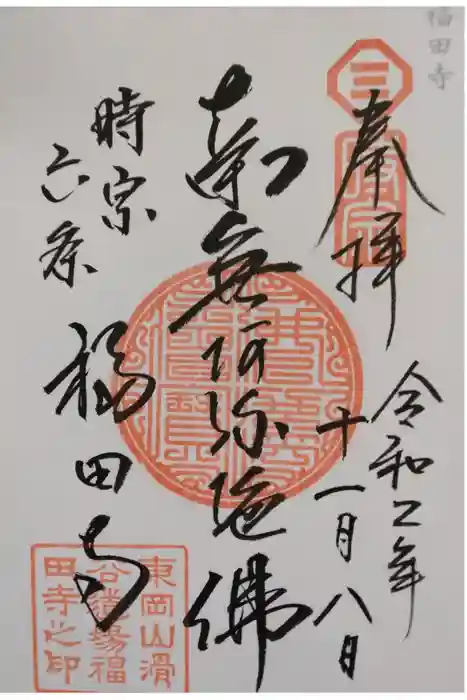 福田寺
奉拝
令和二年
十一月八日
南無阿弥陀佛
時宗
六条
福田寺
三
時宗
東岡山滑
谷道場福
田寺之印